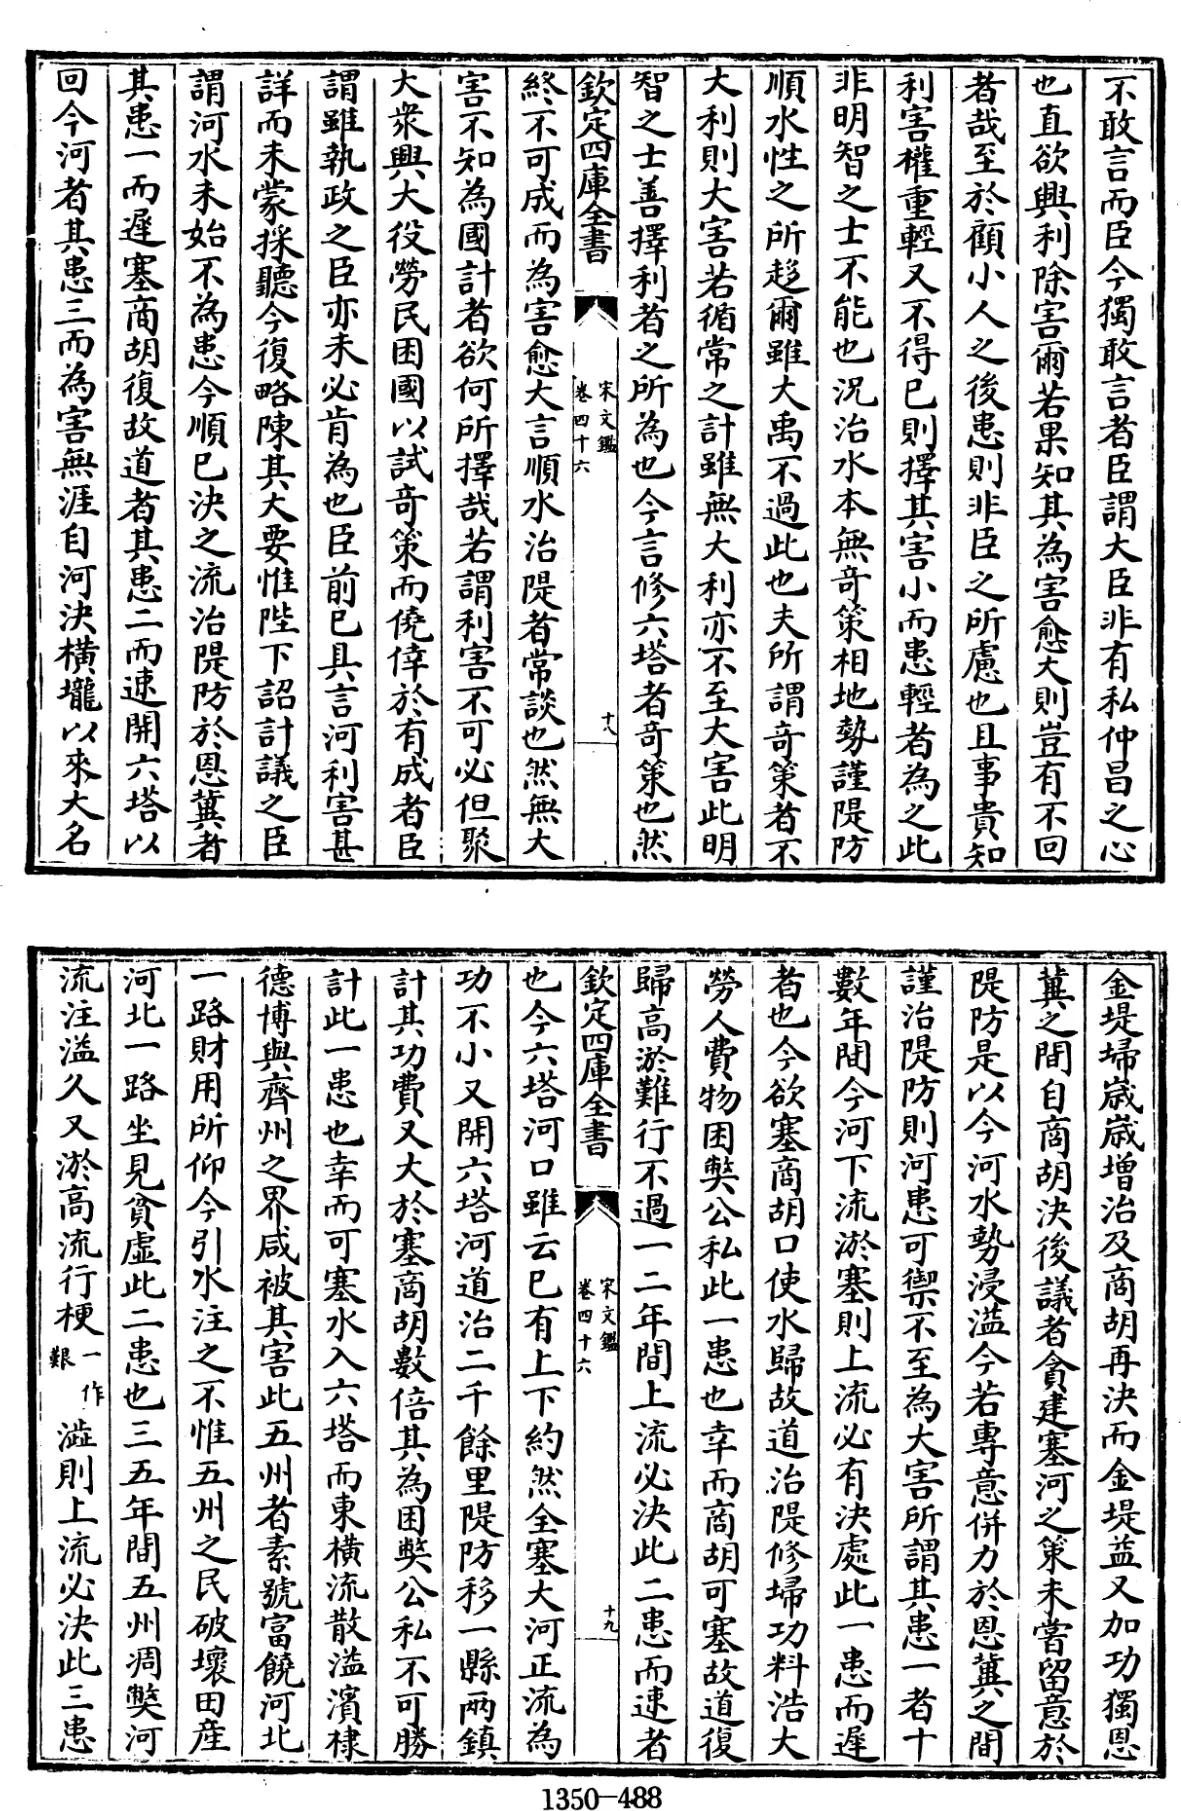 不敢言而臣今獨敢言者臣謂大臣非有私仲昌之心
也直欲興利除害爾若果知其為害愈大則豈有不回
者哉至於顧小人之後患則非臣之所慮也且事貴知
利害權重輕又不得已則擇其害小而患輕者為之此
非明智之士不能也況治水本無奇策相地勢謹隄防
順水性之所趍爾雖大禹不過此也夫所謂奇策者不
大利則大害若循常之計雖無大利亦不至大害此明
智之士善擇利者之所為也今言修六塔者奇策也然
欽定四庫全書
宋文鑑
卷四十六
十八
終不可成而為害愈大言順水治隄者常談也然無大
害不知為國計者欲何所擇哉若謂利害不可必但聚
大衆興大役勞民困國以試奇策而僥倖於有成者臣
謂雖執政之臣亦未必肯為也臣前已具言河利害甚
詳而未蒙採聽今復略陳其大要惟陛下詔計議之臣
謂河水未始不為患今順已決之流治隄防於恩冀者
其患一而遲塞商胡復故道者其患二而速開六塔以
回今河者其患三而為害無涯自河決橫壠以來大名
金堤埽歳歳增治及商胡再決而金堤益又加功獨恩
冀之間自商胡決後議者貪建塞河之策未嘗留意於
隄防是以今河水勢浸溢今若專意併力於恩冀之間
謹治隄防則河患可禦不至為大害所謂其患一者十
數年間今河下流淤塞則上流必有決處此一患而遲
者也今欲塞商胡口使水歸故道治隄修埽功料浩大
勞人費物困獘公私此一患也幸而商胡可塞故道復
歸高淤難行不過一二年間上流必決此二患而速者
欽定四庫全書
宋文鑑
卷四十六
十九
也今六塔河口雖云已有上下約然全塞大河正流為
功不小又開六塔河道治二千餘里隄防移一縣兩鎮
計其功費又大於塞商胡數倍其為困獘公私不可勝
計此一患也幸而可塞水入六塔而東橫流散溢濱棣
德博與齊州之界咸被其害此五州者素號富饒河北
一路財用所仰今引水注之不惟五州之民破壞田産
河北一路坐見貧虛此二患也三五年間五州凋獘河
流注溢久又淤高流行梗一作艱澁則上流必決此三患
1350-488